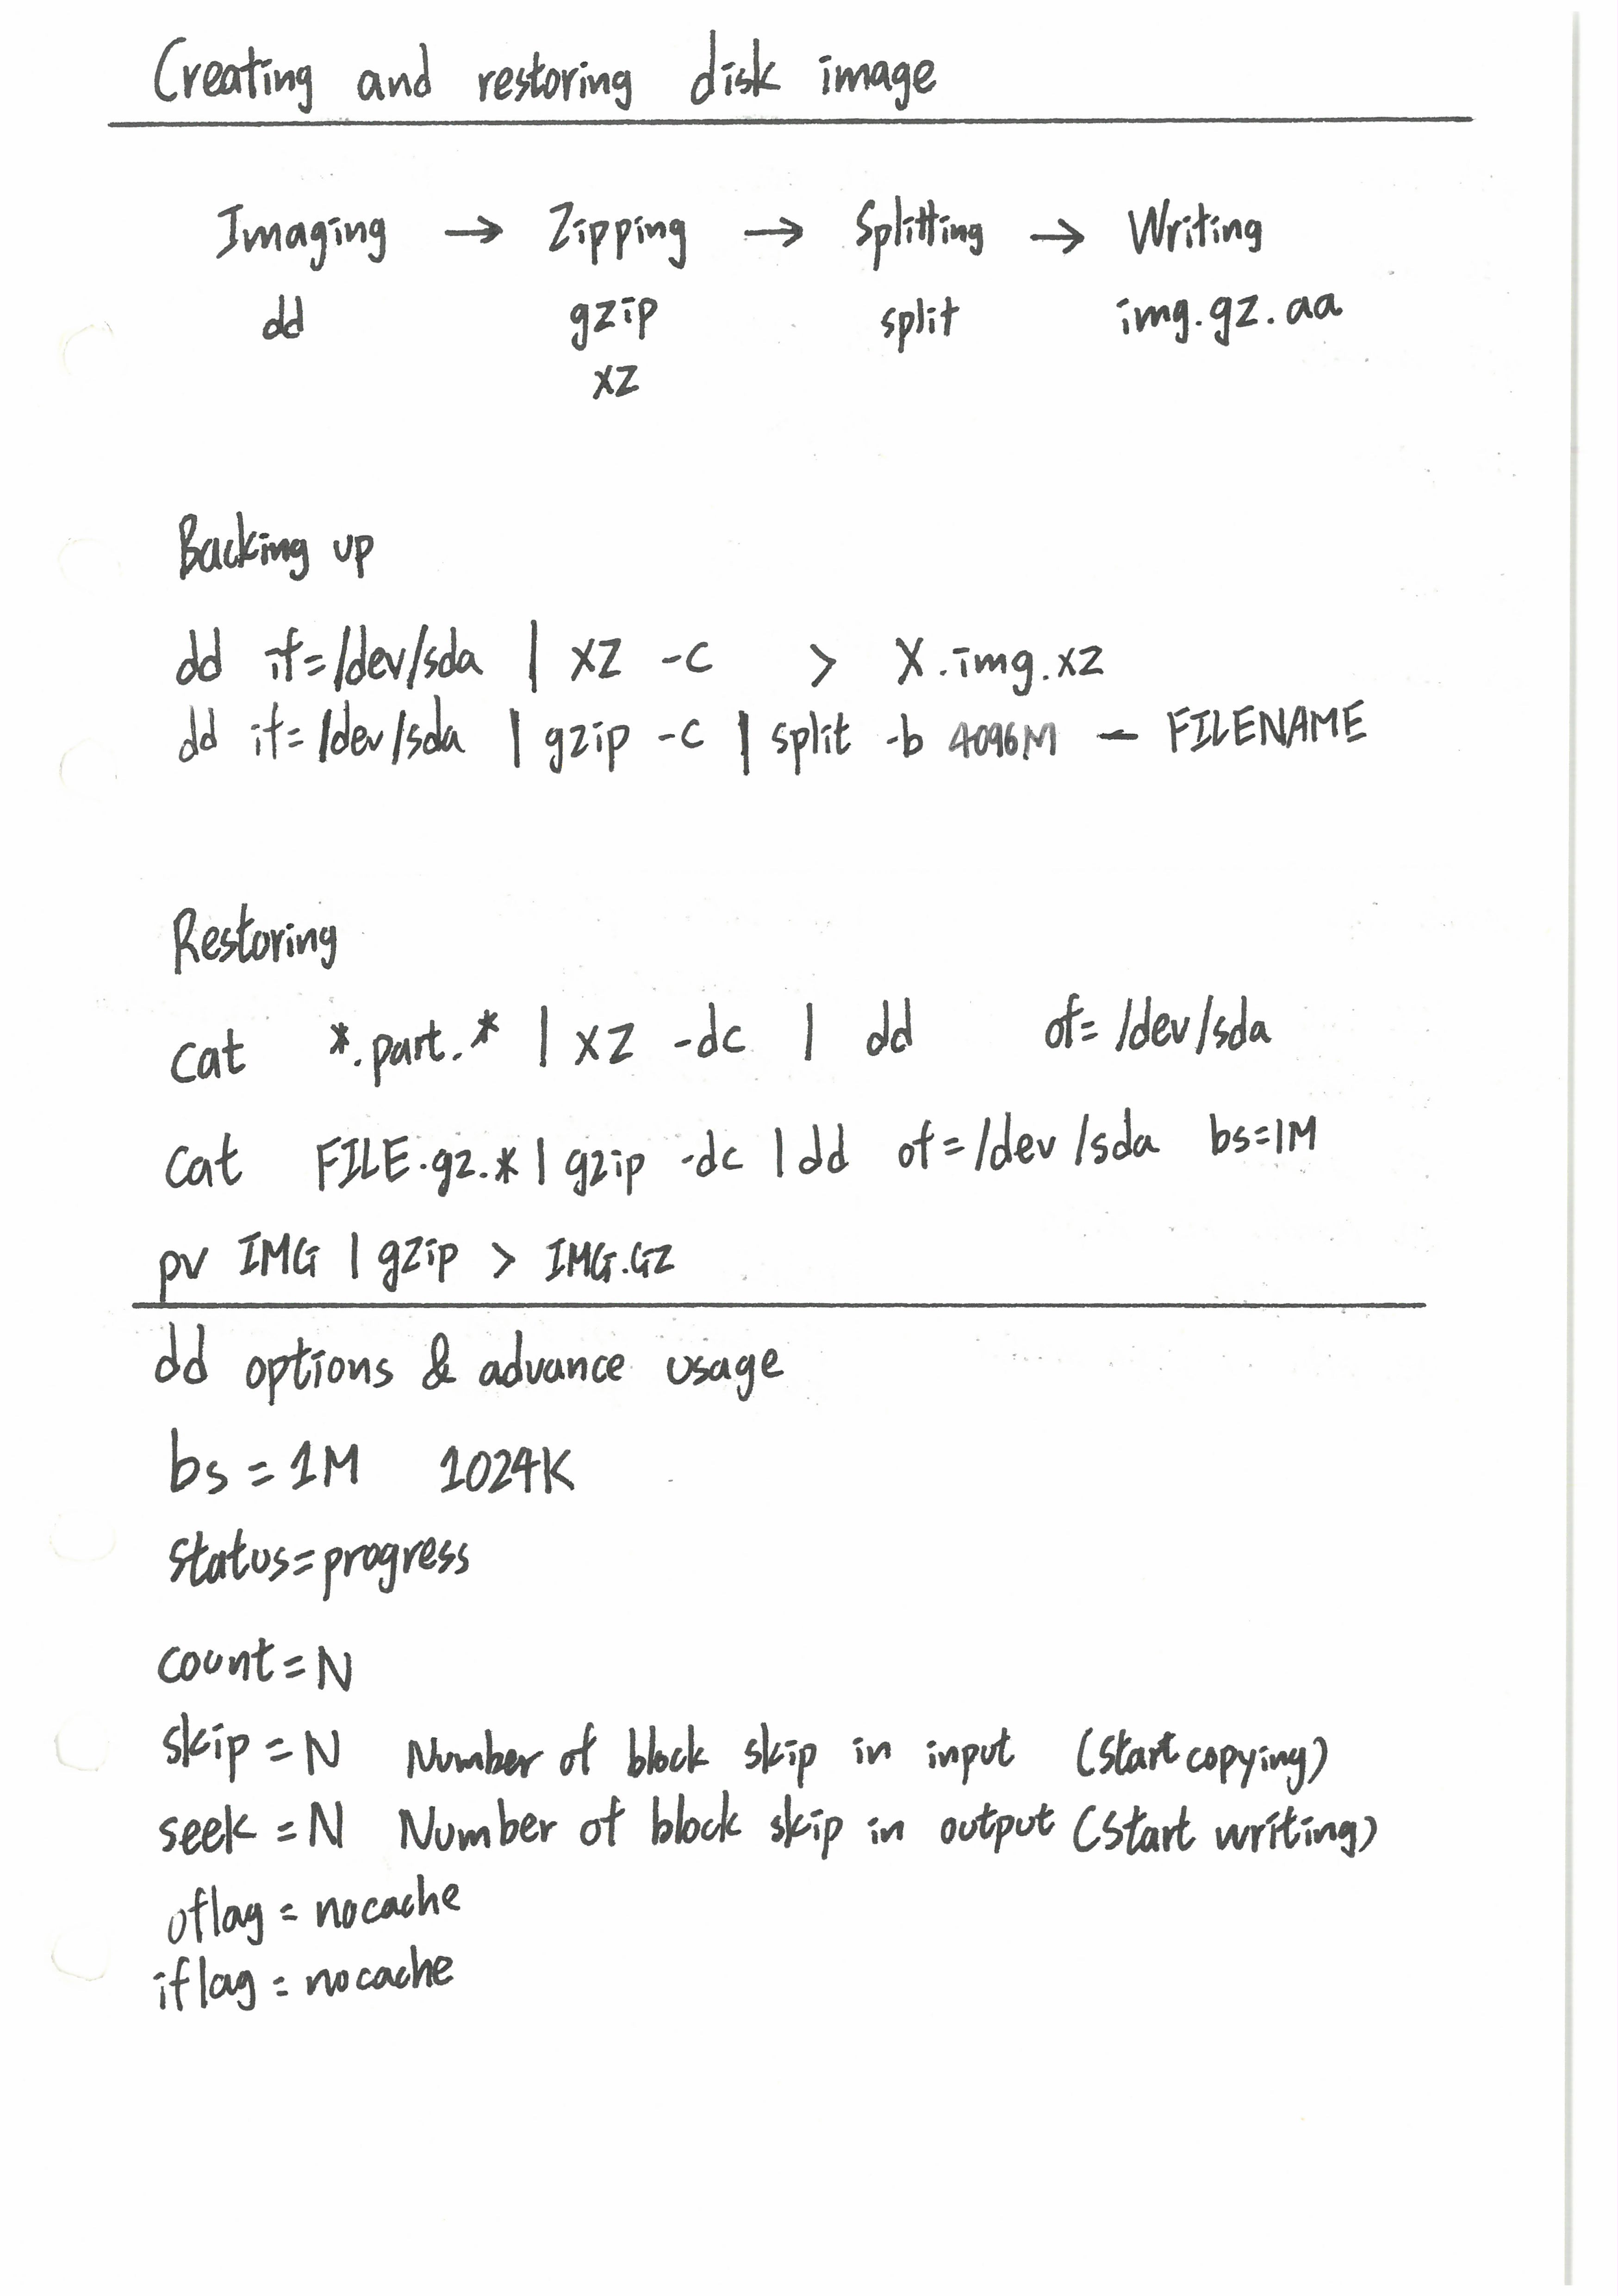 Creating and restoring disk image
Imaging → Zipping → Splitting → Writing
dd gzip split img.gz.aa
xz
Backing up
dd if=/dev/sda | xz -c > X.img.xz
dd if=/dev/sda | gzip -c | split -b 4096M - FILENAME
Restoring
cat *.part.* | xz -dc | dd of=/dev/sda
cat FILE.gz.* | gzip -dc | dd of=/dev/sda bs=1M
pv IMG | gzip > IMG.GZ
dd options & advance usage
bs=1M 1024K
status=progress
count=N
skip=N Number of block skip in input (start copying)
seek=N Number of block skip in output (start writing)
oflag=nocache
iflag=nocache